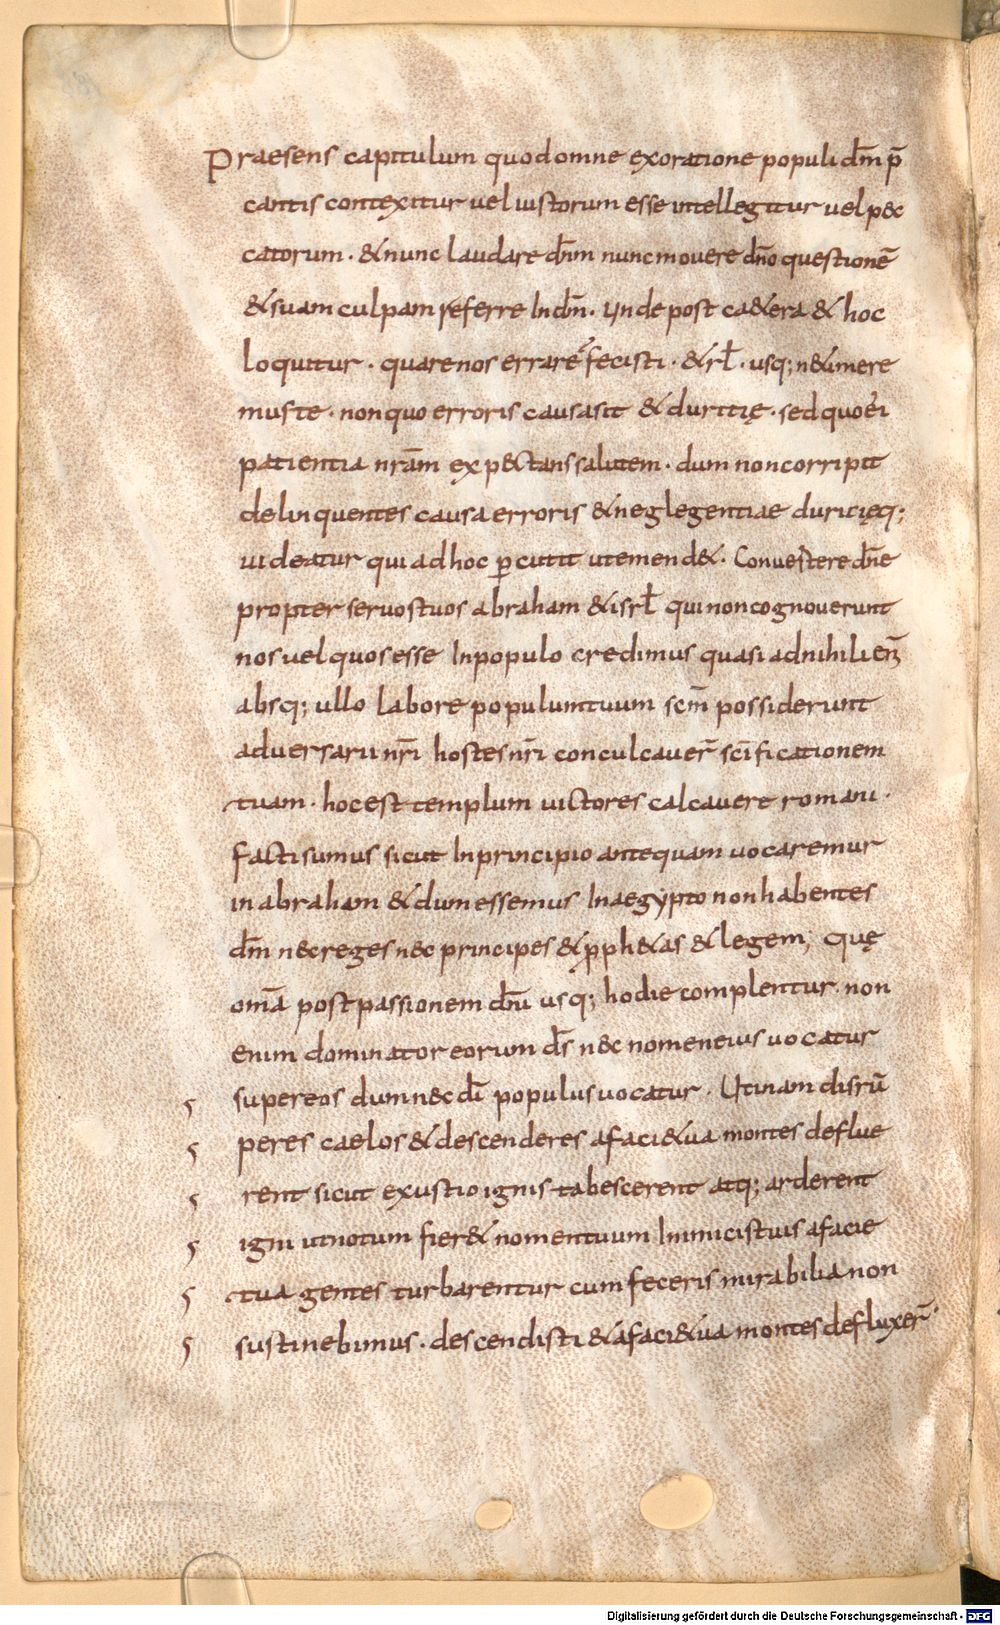 Praesens capitulum quod omne ex oratione populi dm̄ p̄
cantis contexitur uel iustorum esse intellegitur uel pec
catorum · & nunc laudare dn̄m nunc mouere dn̄o questionē
& suam culpam referre In dn̄m · Unde post cae&era & hoc
loquitur · quare nos errare fecisti · & rl̄ · usq; ne timere
mus te · non quo erroris causa sit & duritię · sed quo ei
patientia nr̄am expectans salutem · dum non corripit
delinquentes causa erroris & neglegentiae duricięq;
uideatur qui adhoc ꝑcutit ut emend& · Conuertere dn̄e
propter seruos tuos abraham & isrl̄ qui non cognouerunt
nos uel quos esse In populo credimus quasi ad nihili em̄
absq; ullo labore populum tuum scm̄ possiderunt
aduersarii nr̄i hostes nr̄i conculcauer̄ sc̄ificationem
tuam · hoc est templum uictores calcauere romani ·
facti sumus sicut In principio antequam uocaremur
in abraham & dum essemus In aegypto non habentes
dm̄ nec reges nec principes & pph&as & legem; Quę
om̄a post passionem dn̄i usq; hodie complentur · non
enim dominator eorum ds̄ nec nomen eius uocatur
super eos dum nec dī populus uocatur · Utinam disrū
peres caelos & descenderes a faci& ua montes deflue
rent sicut exustio ignis tabescerent atq; arderent
igni ut notum fier& nomen tuum Inimicis tuis a facie
tua gentes turbarentur cum feceris mirabilia non
sustinebimus · descendisti & a faci& ua montes defluxer̄ ·
Digitalisierung gefördert durch die Deutsche Forschungsgemeinschaft - DFG